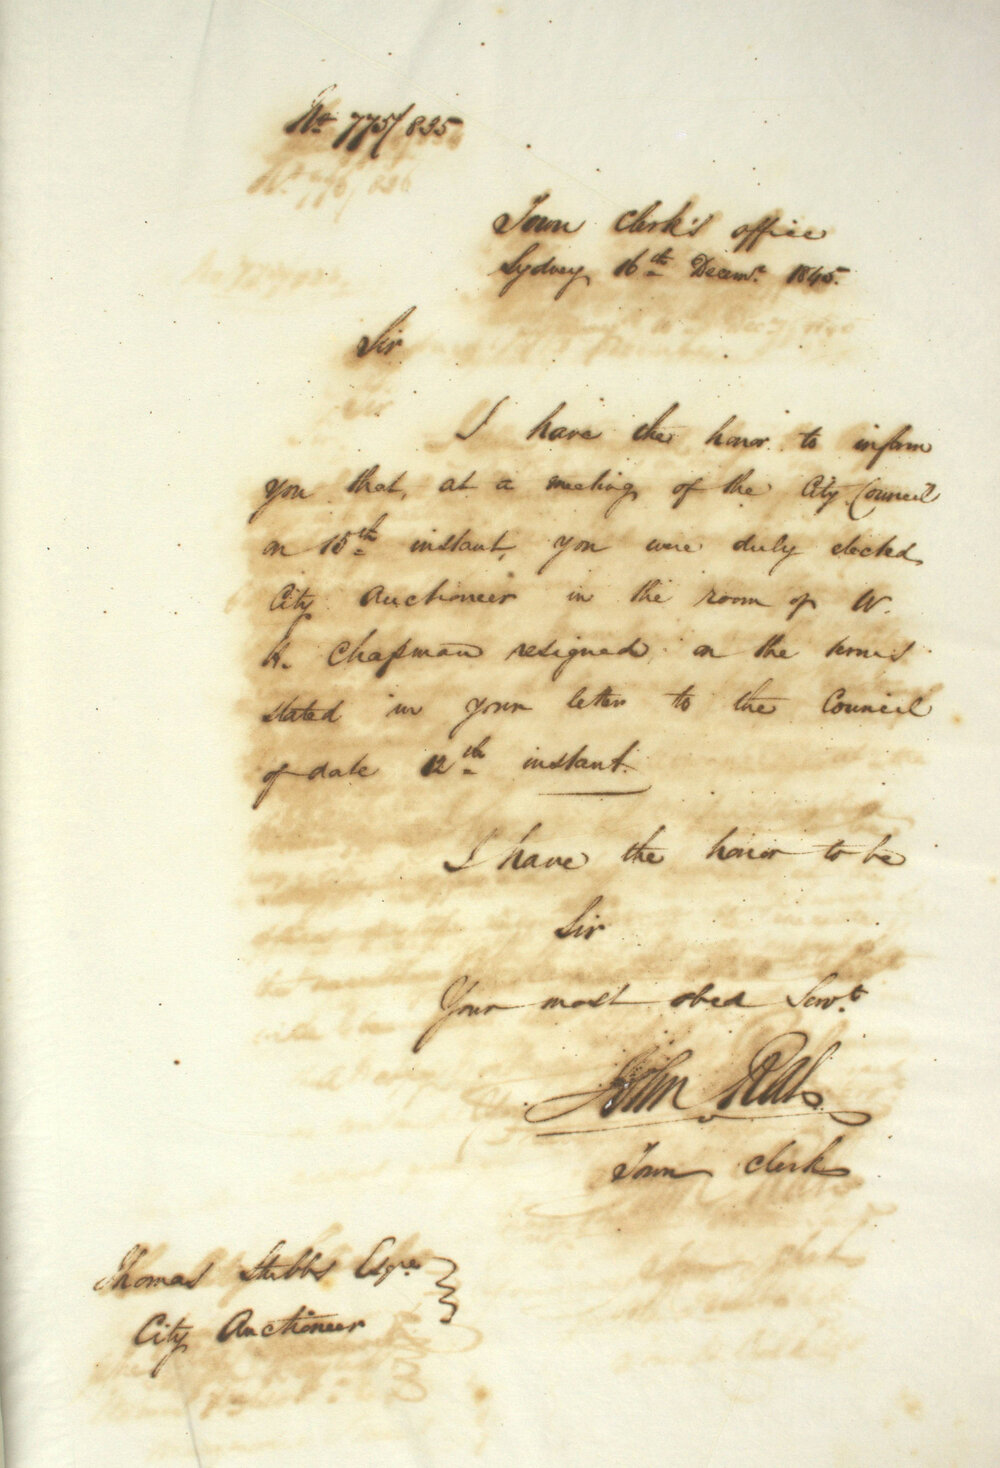 No 775/835
Town Clerk's office
Sydney 16th Decemr. 1845.
Sir
I have the honor to inform
you that, at a meeting of the City Council
on 15th instant, you were duly elected
City Auctioneer in the room of W.
H. Chapman resigned, on the terms
stated in your letter to the Council
of date 12th instant.
I have the honor to be
Sir
Your most obed Servt
John Rae
Town Clerk
Thomas Stubbs Esqre
City Auctioneer